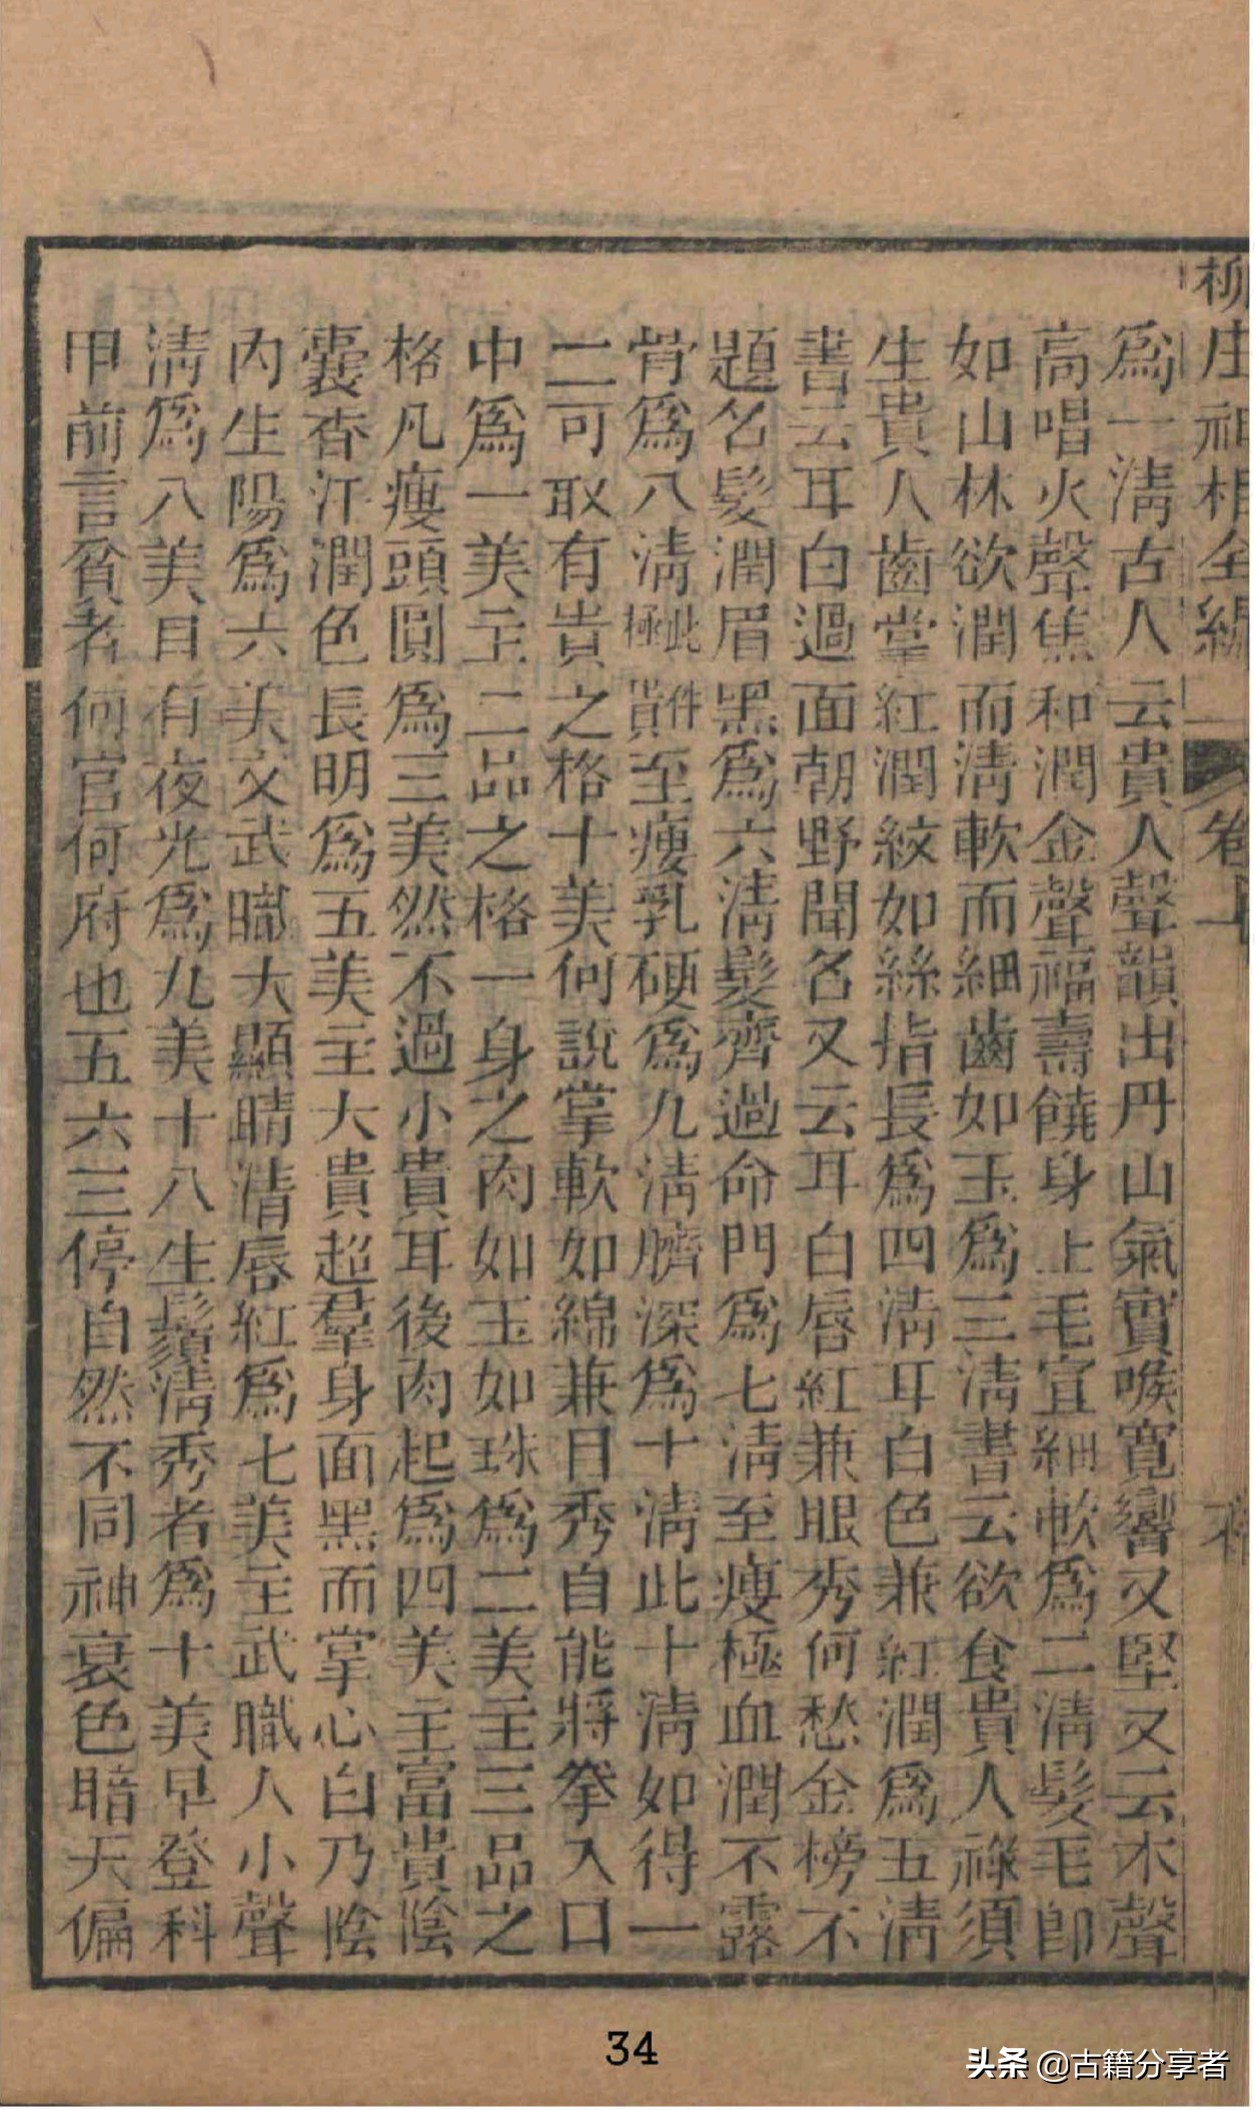 柳庄神相全編 卷上
爲一淸古人云貴人聲韻出丹山氣實喉寬響又堅又云木聲
高唱火聲焦和潤金聲福壽饒身上毛宜細軟爲二淸髮毛卽
如山林欲潤而淸軟而細齒如玉爲三淸書云欲食貴人祿須
生貴人齒掌紅潤紋如絲指長爲四淸耳白色兼紅潤爲五淸
書云耳白過面朝野聞名又云耳白唇紅兼眼秀何愁金榜不
題名髮潤眉黑爲六淸髮齊過命門爲七淸至瘦極血潤不露
骨爲八淸此件極貴至瘦乳硬爲九淸臍深爲十淸此十淸如得一
二可取有貴之格十美何說掌軟如綿兼目秀自能將拳入口
中爲一美主二品之格一身之肉如玉如珠爲二美主三品之
格凡瘦頭圓爲三美然不過小貴耳後肉起爲四美主富貴陰
囊香汗潤色長明爲五美主大貴超羣身面黑而掌心白乃陰
內生陽爲六美文武職大顯睛清唇紅爲七美主武職人小聲
淸爲八美目有夜光爲九美十八生鬚淸秀者爲十美早登科
甲前言貧者何官何府也五六三停自然不同神衰色暗天偏
34
头条 @古籍分享者